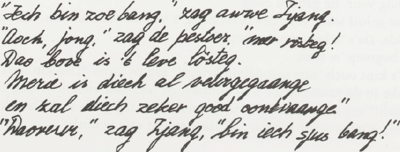 "Iech bin zoe bang," zag auwe Tjang.
"Aoch, jong," zag de pestoer, "mer rösteg!
Dao bove is 't leve lösteg.
Merie is diech al veurgegaange
en zal diech zeker good ontvaange"
"Daoveur," zag Tjang, "bin iech sjus bang!"